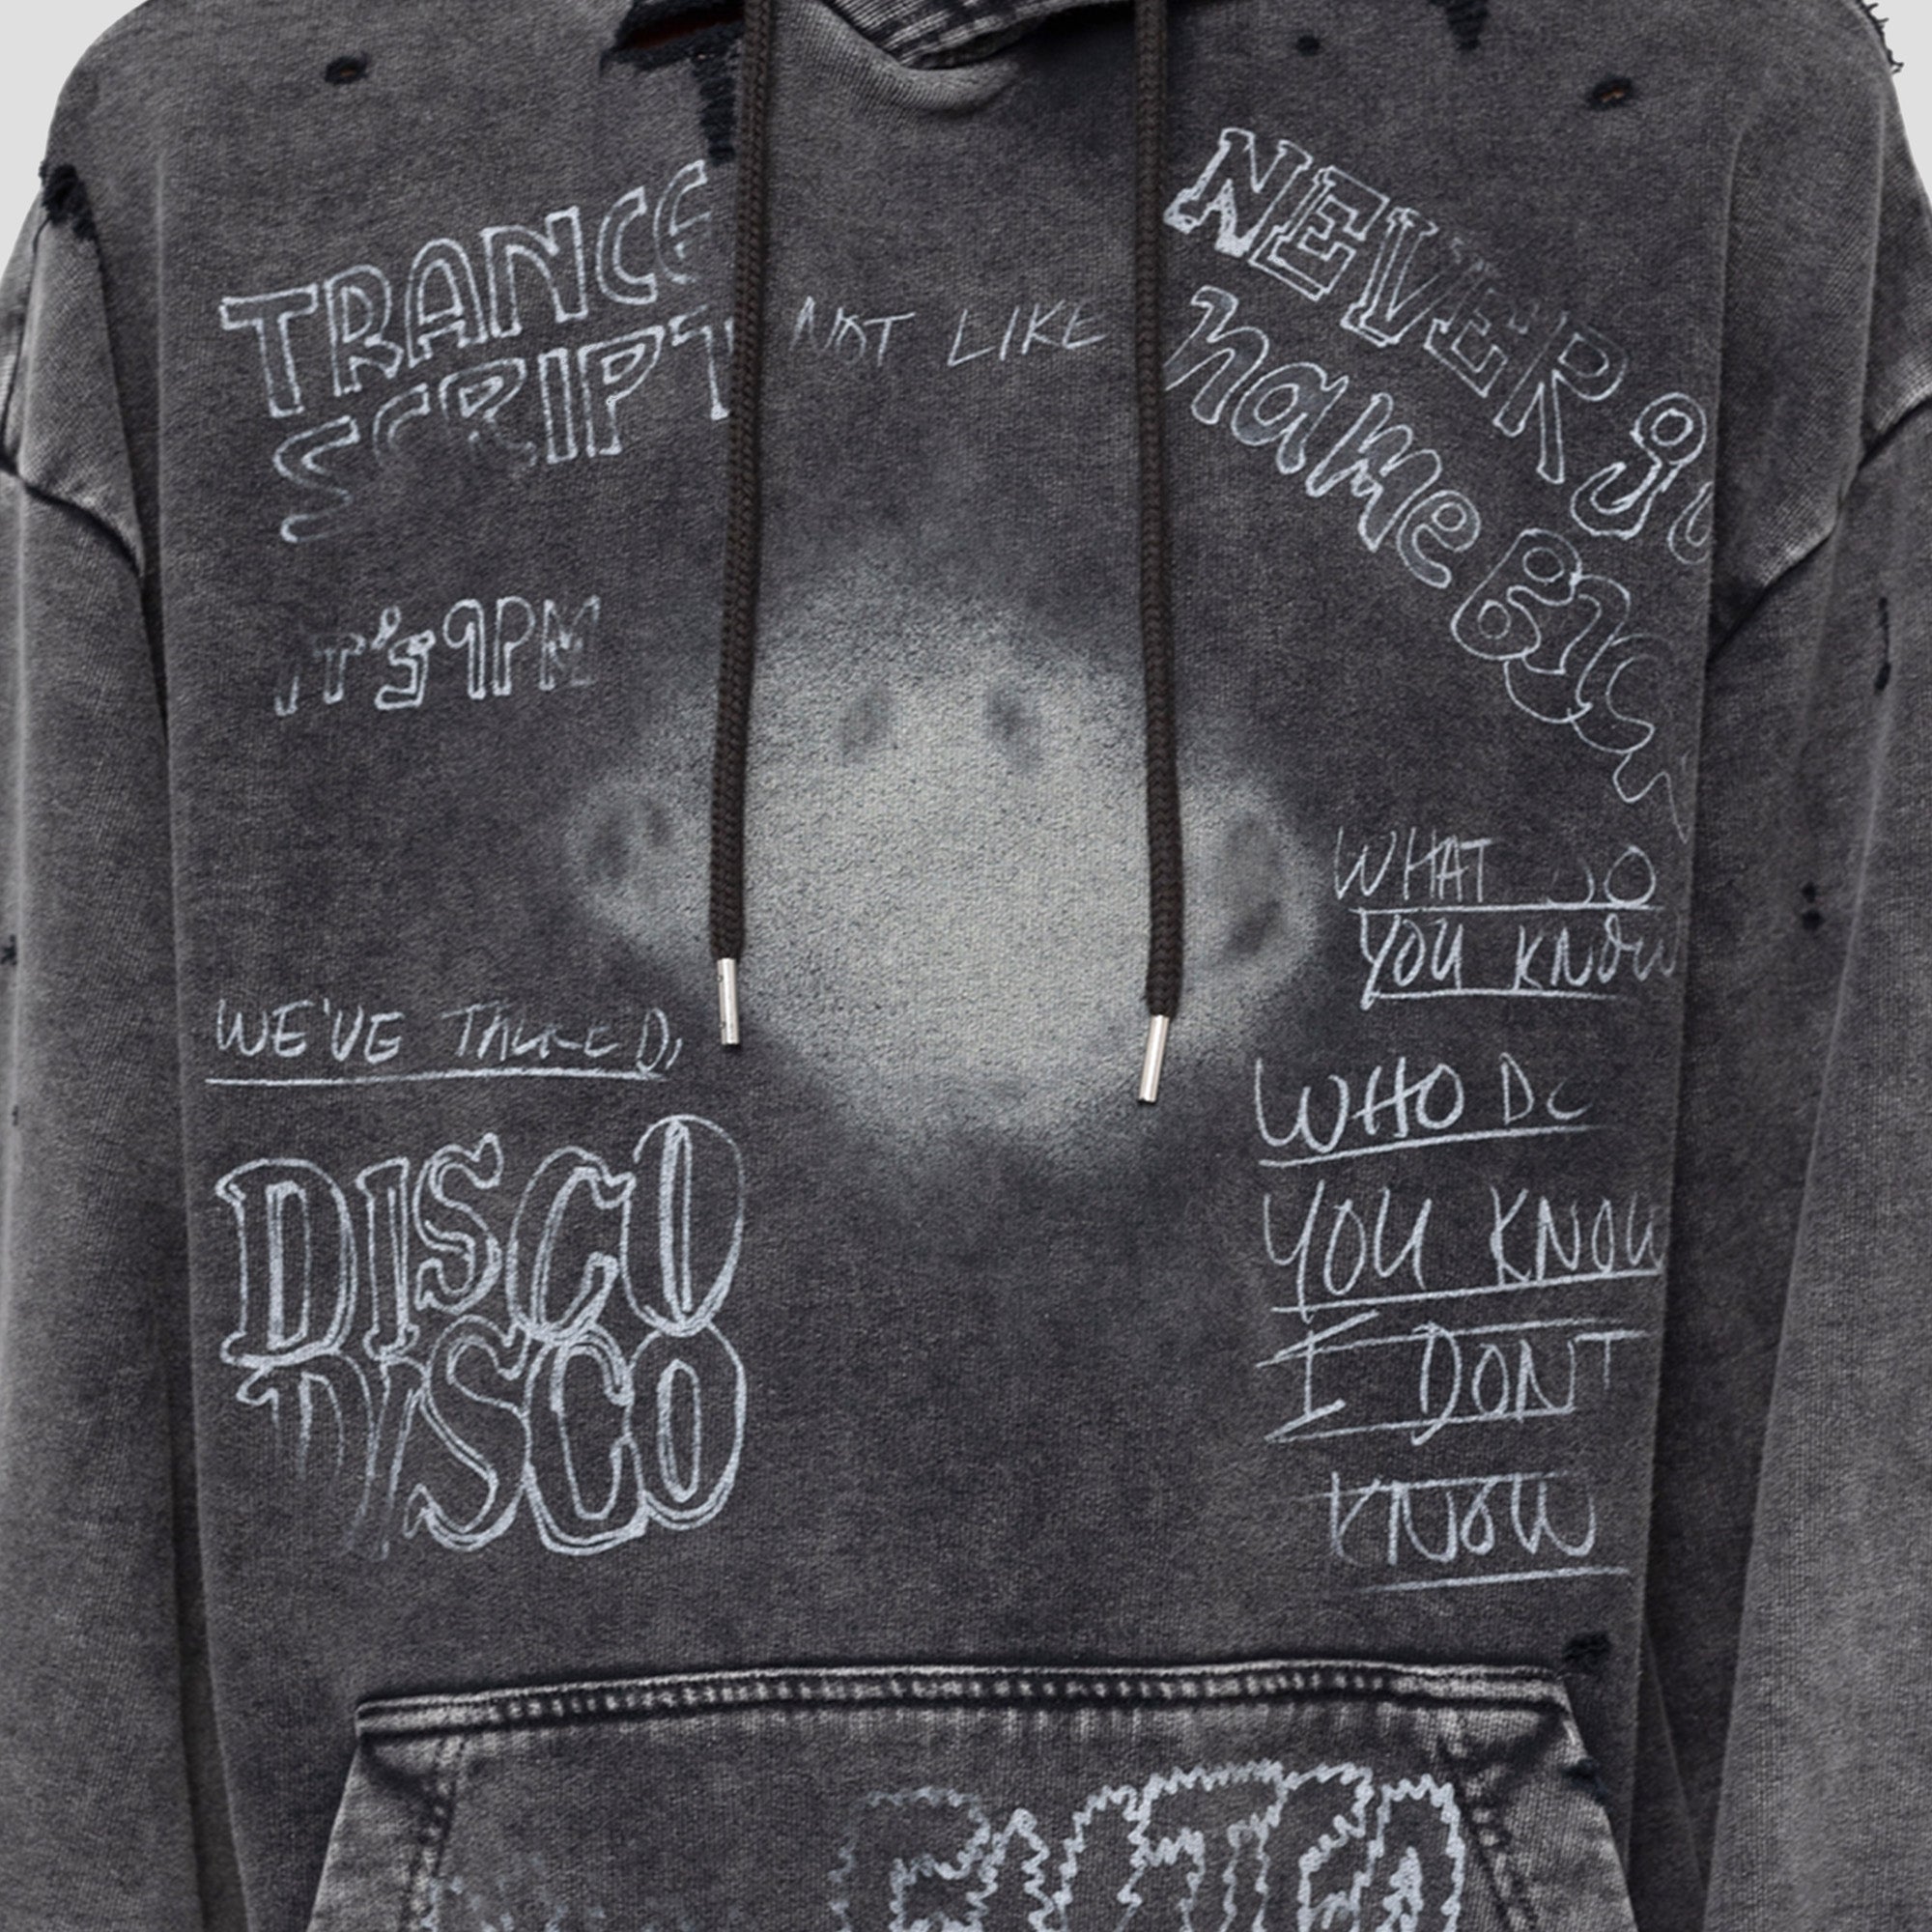 TRANCE
SCRIPT
NOT LIKE
NEVER
name
IT'S 9PM
WHAT
YOU KNOW
WE'VE TALKED,
WHO DO
DISCO
DISCO
YOU KNOW
I DONT
KNOW